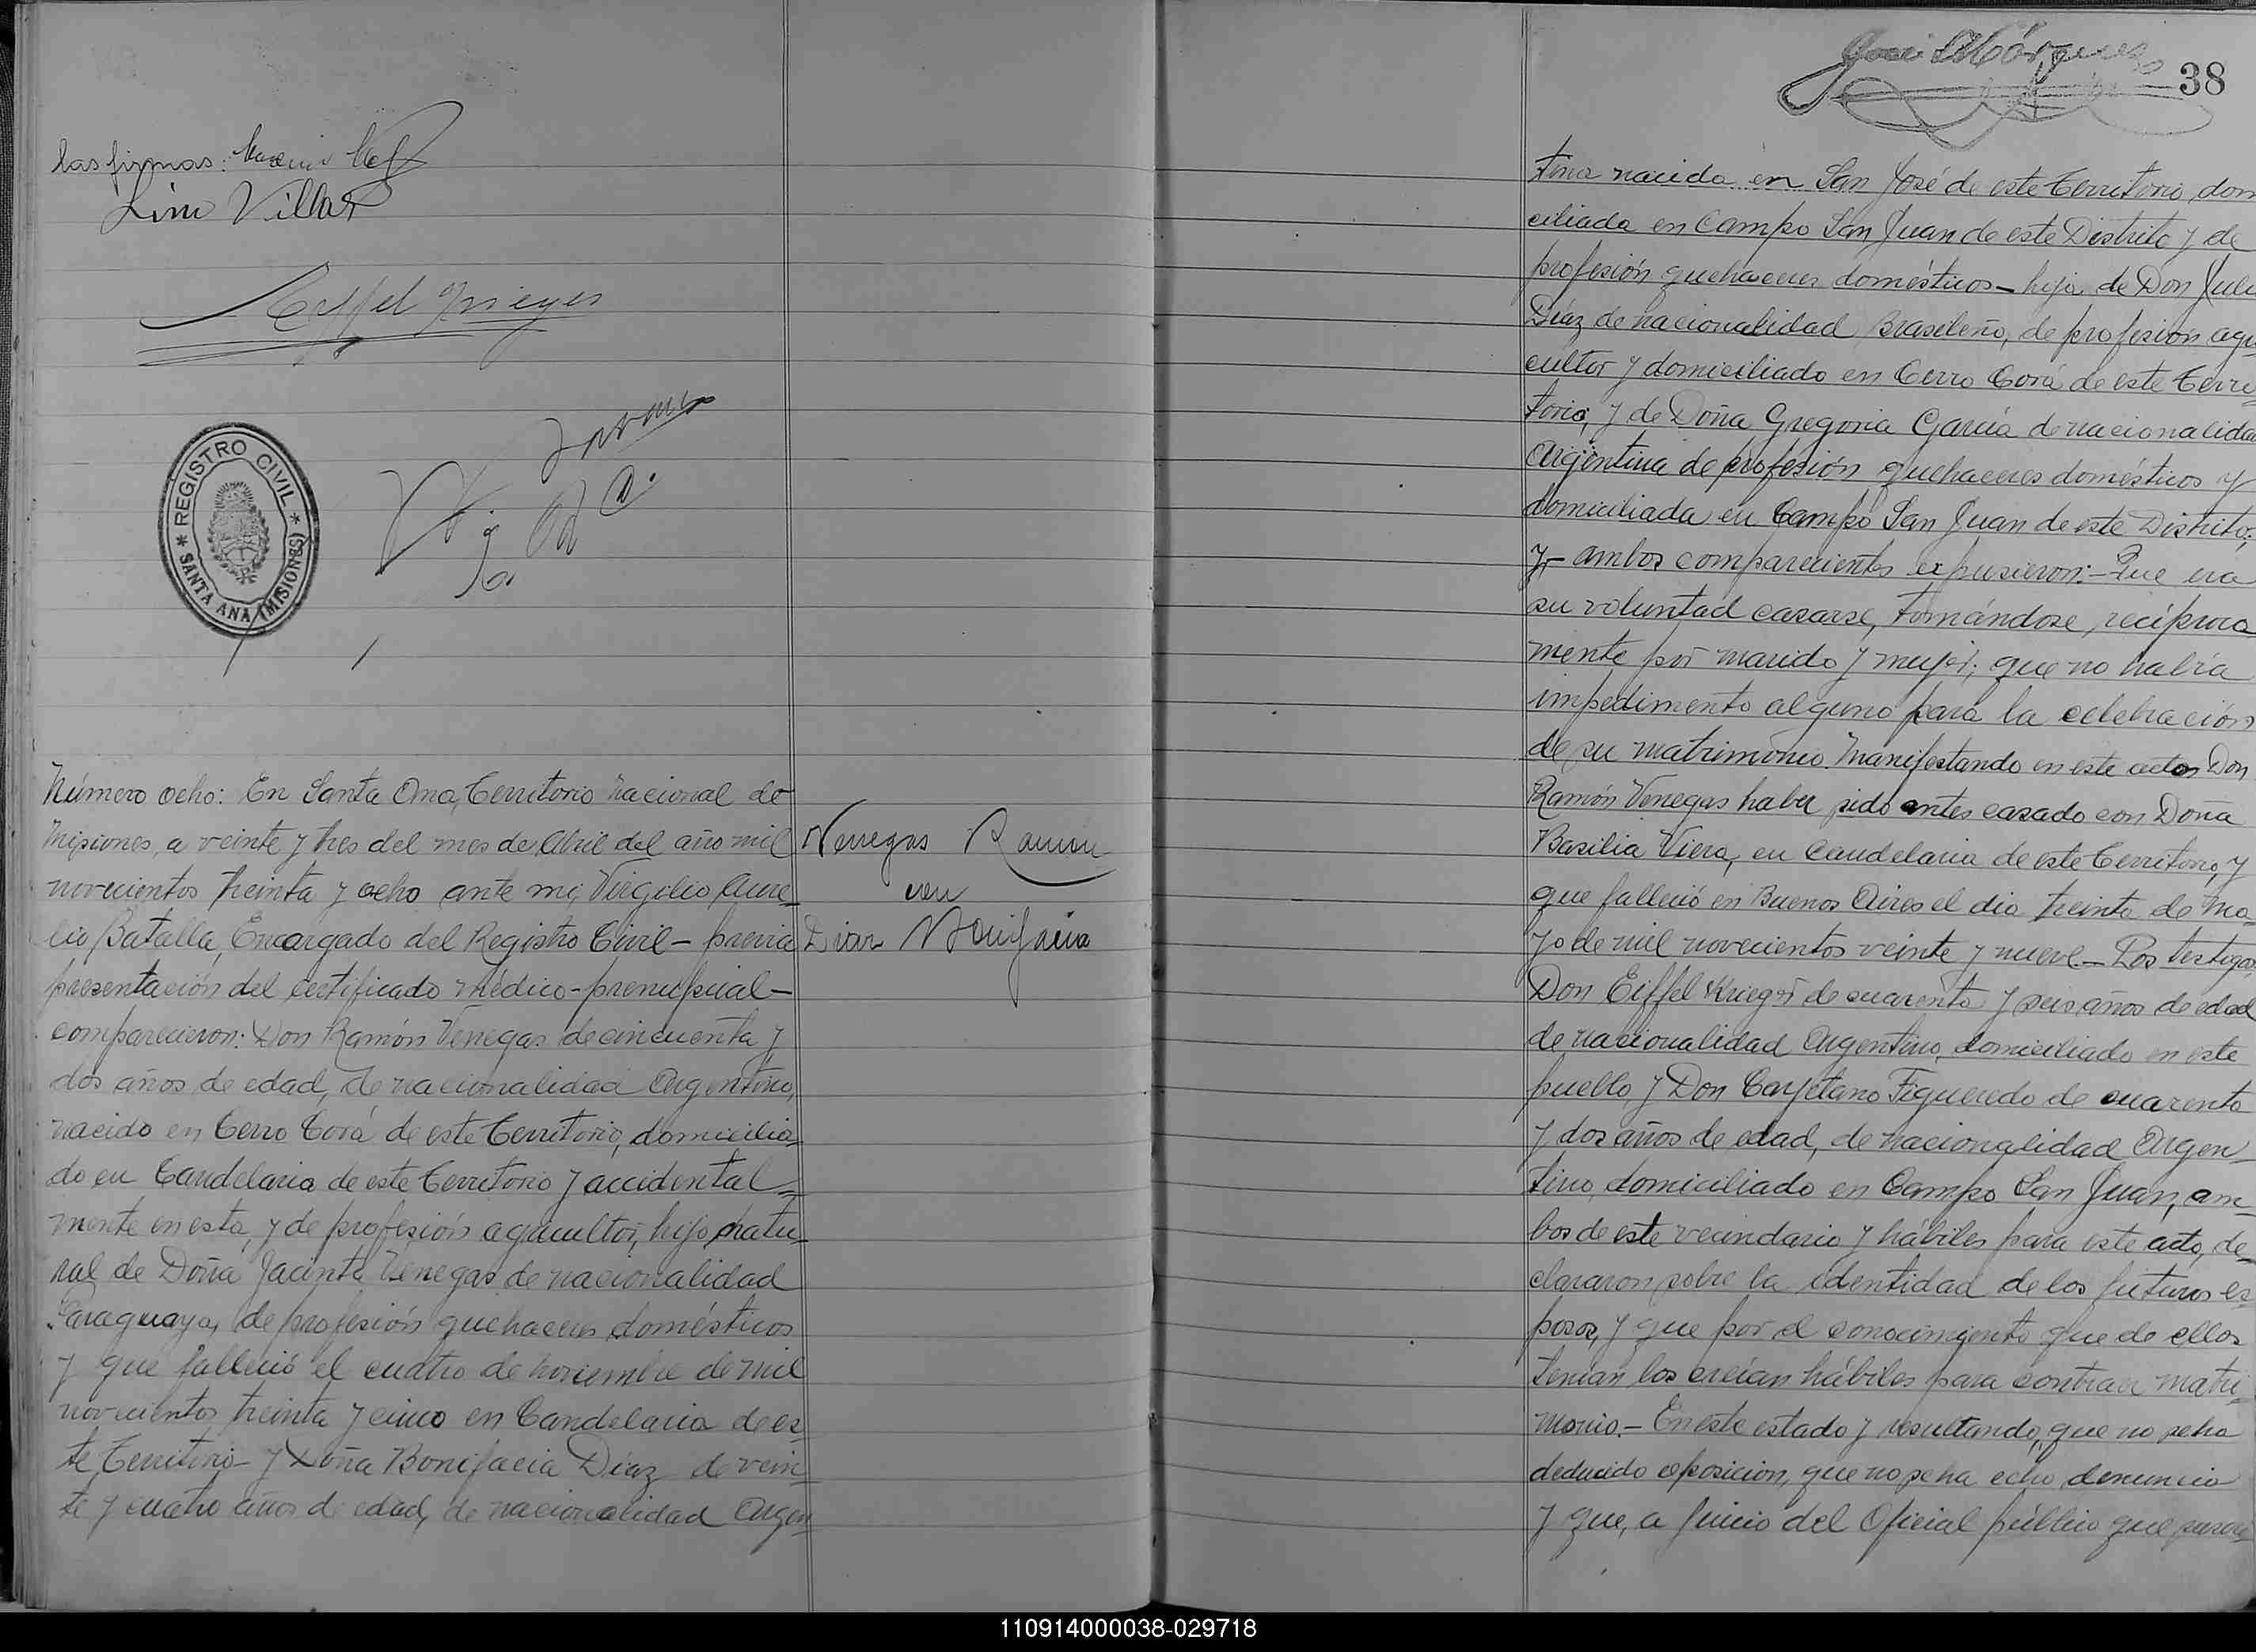 las firmas:
Lino Villar
Eiffel Krieger
REGISTRO CIVIL
SANTA ANA (MISIONES)
Número ocho: En Santa Ana, Territorio Nacional de
Misiones, a veinte y tres del mes de Abril del año mil
novecientos treinta y ocho ante mi, Virgilio Aure-
lio Batalla, Encargado del Registro Civil - previa
presentación del certificado médico-prenupcial-
comparecieron: Don Ramón Venegas de cincuenta y
dos años de edad, de nacionalidad Argentino,
nacido en Cerro Corá de este Territorio, domicilia-
do en Candelaria de este Territorio y accidental-
mente en esta, y de profesión agricultor, hijo natu-
ral de Doña Jacinta Venegas de nacionalidad
Paraguaya, de profesión quehaceres domésticos
y que falleció el cuatro de noviembre de mil
novecientos treinta y cinco en Candelaria de es-
te Territorio- y Doña Bonifacia Díaz de vein-
te y cuatro años de edad, de nacionalidad Argen-
Venegas Ramon
con
Diaz Bonifacia
José Márquez
38
tina nacida en San José de este Territorio, domi
ciliada en Campo San Juan de este Distrito y de
profesión quehaceres domésticos - hija de Don Juli
Díaz de nacionalidad Brasileño, de profesión agri
cultor y domiciliado en Cerro Corá de este Terri-
torio, y de Doña Gregoria García de nacionalidad
Argentina de profesión quehaceres domésticos y
domiciliada en Campo San Juan de este Distrito;
y- ambos comparecientes expusieron:- Que era
su voluntad casarse, tomándose, recíproca-
mente por marido y mujer; que no había
impedimento alguno para la celebración
de su matrimonio. Manifestando en este acto Don
Ramón Venegas haber sido antes casado con Doña
Basilia Viera, en Candelaria de este Territorio, y
que falleció en Buenos Aires el dia treinta de Ma-
yo de mil novecientos veinte y nueve.- Los testigos,
Don Eiffel Krieger de cuarenta y seis años de edad
de nacionalidad Argentino, domiciliado en este
pueblo, y Don Cayetano Figueredo de cuarenta
y dos años de edad, de nacionalidad Argen-
tino, domiciliado en Campo San Juan, am-
bos de este vecindario y hábiles para este acto, de-
clararon sobre la identidad de los futuros es-
posos, y que por el conocimiento que de ellos
tenían los creían hábiles para contraer matri-
monio.- En este estado y resultando, que no se ha
deducido oposicion, que no se ha echo denuncia
y que, a juicio del Oficial público que